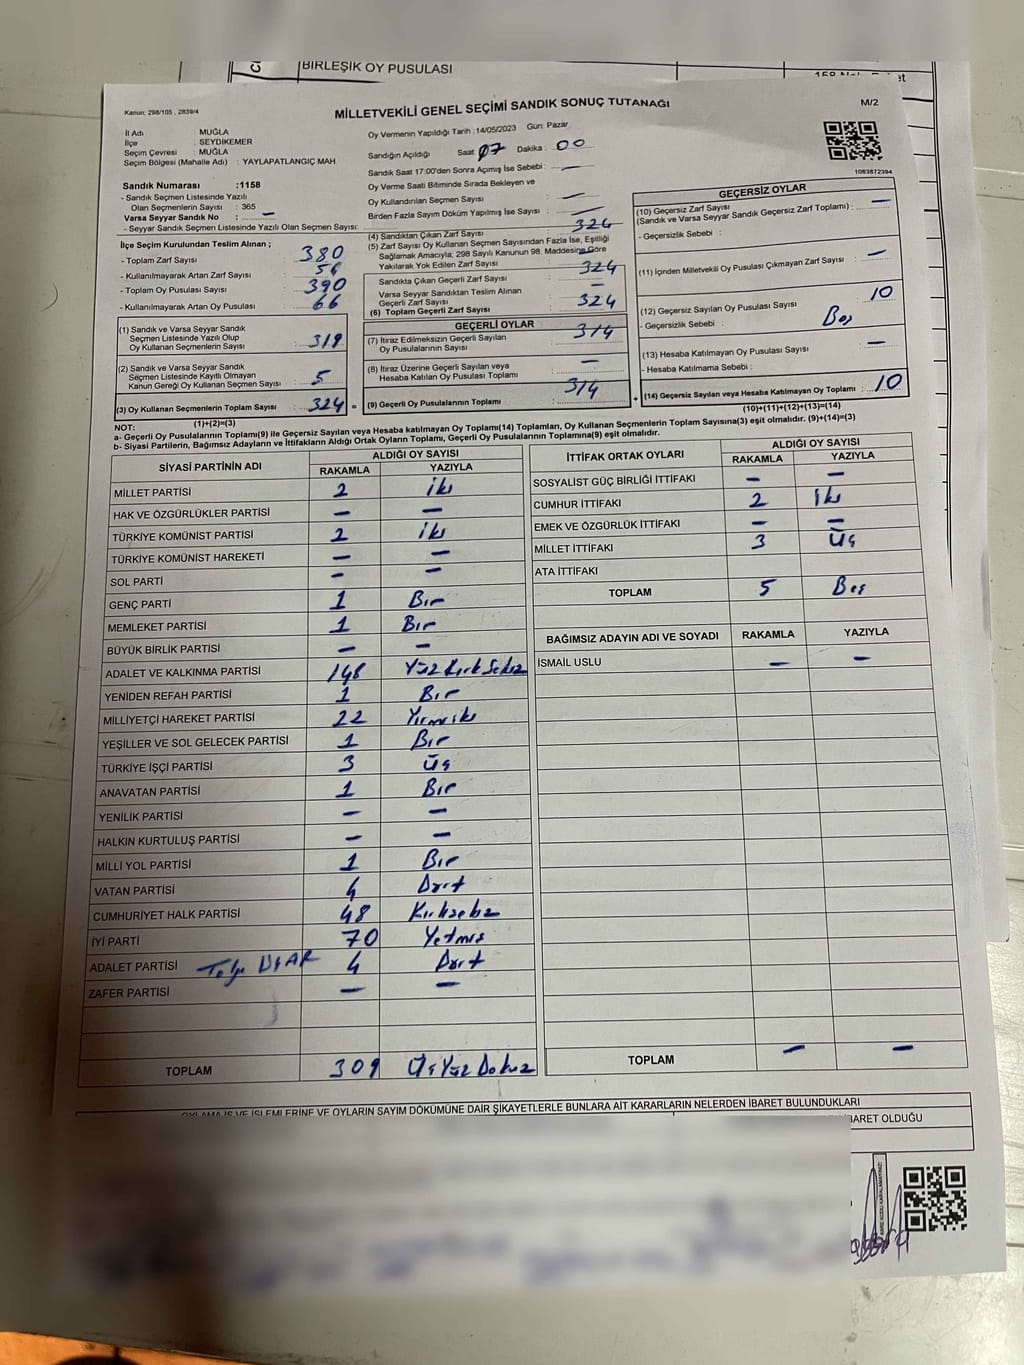 BİRLEŞİK OY PUSULASI
Kanun: 298/105 , 2839/4
MİLLETVEKİLİ GENEL SEÇİMİ SANDIK SONUÇ TUTANAĞI
M/2
İl Adı : MUĞLA
İlçe : SEYDİKEMER
Seçim Çevresi : MUĞLA
Seçim Bölgesi (Mahalle Adı) : YAYLAPATLANGIÇ MAH
Oy Vermenin Yapıldığı Tarih :14/05/2023 Gün: Pazar
Sandığın Açıldığı Saat : 07 Dakika : 00
Sandık Saat 17:00'den Sonra Açımış İse Sebebi : —
Oy Verme Saati Bitiminde Sırada Bekleyen ve
Oy Kullandırılan Seçmen Sayısı : —
Birden Fazla Sayım Döküm Yapılmış İse Sayısı : —
1083872394
Sandık Numarası :1158
- Sandık Seçmen Listesinde Yazılı
Olan Seçmenlerin Sayısı : 365
Varsa Seyyar Sandık No : —
- Seyyar Sandık Seçmen Listesinde Yazılı Olan Seçmen Sayısı:
İlçe Seçim Kurulundan Teslim Alınan ;
- Toplam Zarf Sayısı : 380
- Kullanılmayarak Artan Zarf Sayısı : 56
- Toplam Oy Pusulası Sayısı : 390
- Kullanılmayarak Artan Oy Pusulası : 66
(1) Sandık ve Varsa Seyyar Sandık
Seçmen Listesinde Yazılı Olup
Oy Kullanan Seçmenlerin Sayısı : 319
(2) Sandık ve Varsa Seyyar Sandık
Seçmen Listesinde Kayıtlı Olmayan
Kanun Gereği Oy Kullanan Seçmen Sayısı : 5
(3) Oy Kullanan Seçmenlerin Toplam Sayısı : 324 =
(1)+(2)=(3)
(4) Sandıktan Çıkan Zarf Sayısı : 324
(5) Zarf Sayısı Oy Kullanan Seçmen Sayısından Fazla İse, Eşitliği
Sağlamak Amacıyla; 298 Sayılı Kanunun 98. Maddesine Göre
Yakılarak Yok Edilen Zarf Sayısı : —
Sandıkta Çıkan Geçerli Zarf Sayısı : 324
Varsa Seyyar Sandıktan Teslim Alınan
Geçerli Zarf Sayısı : —
(6) Toplam Geçerli Zarf Sayısı : 324
GEÇERLİ OYLAR
(7) İtiraz Edilmeksizin Geçerli Sayılan
Oy Pusulalarının Sayısı : 314
(8) İtiraz Üzerine Geçerli Sayılan veya
Hesaba Katılan Oy Pusulası Toplamı : —
(9) Geçerli Oy Pusulalarının Toplamı : 314 +
GEÇERSİZ OYLAR
(10) Geçersiz Zarf Sayısı
(Sandık ve Varsa Seyyar Sandık Geçersiz Zarf Toplamı) : —
- Geçersizlik Sebebi :
(11) İçinden Milletvekili Oy Pusulası Çıkmayan Zarf Sayısı : —
(12) Geçersiz Sayılan Oy Pusulası Sayısı : 10
- Geçersizlik Sebebi : Boş
(13) Hesaba Katılmayan Oy Pusulası Sayısı : —
- Hesaba Katılmama Sebebi :
(14) Geçersiz Sayılan veya Hesaba Katılmayan Oy Toplamı : 10
(10)+(11)+(12)+(13)=(14)
NOT:
a- Geçerli Oy Pusulalarının Toplamı(9) ile Geçersiz Sayılan veya Hesaba katılmayan Oy Toplamı(14) Toplamları, Oy Kullanan Seçmenlerin Toplam Sayısına(3) eşit olmalıdır. (9)+(14)=(3)
b- Siyasi Partilerin, Bağımsız Adayların ve İttifakların Aldığı Ortak Oyların Toplamı, Geçerli Oy Pusulalarının Toplamına(9) eşit olmalıdır.
SİYASİ PARTİNİN ADI ALDIĞI OY SAYISI
RAKAMLA YAZIYLA
MİLLET PARTİSİ 2 iki
HAK VE ÖZGÜRLÜKLER PARTİSİ — —
TÜRKİYE KOMÜNİST PARTİSİ 2 iki
TÜRKİYE KOMÜNİST HAREKETİ — —
SOL PARTİ — —
GENÇ PARTİ 1 Bir
MEMLEKET PARTİSİ 1 Bir
BÜYÜK BİRLİK PARTİSİ — —
ADALET VE KALKINMA PARTİSİ 148 Yüz Kırk Sekiz
YENİDEN REFAH PARTİSİ 1 Bir
MİLLİYETÇİ HAREKET PARTİSİ 22 Yirmi iki
YEŞİLLER VE SOL GELECEK PARTİSİ 1 Bir
TÜRKİYE İŞÇİ PARTİSİ 3 Üç
ANAVATAN PARTİSİ 1 Bir
YENİLİK PARTİSİ — —
HALKIN KURTULUŞ PARTİSİ — —
MİLLİ YOL PARTİSİ 1 Bir
VATAN PARTİSİ 4 Dört
CUMHURİYET HALK PARTİSİ 48 Kırksekiz
İYİ PARTİ 70 Yetmiş
ADALET PARTİSİ 4 Dört
ZAFER PARTİSİ — —
TOPLAM 309 Üç Yüz Dokuz
İTTİFAK ORTAK OYLARI ALDIĞI OY SAYISI
RAKAMLA YAZIYLA
SOSYALİST GÜÇ BİRLİĞİ İTTİFAKI — —
CUMHUR İTTİFAKI 2 iki
EMEK VE ÖZGÜRLÜK İTTİFAKI — —
MİLLET İTTİFAKI 3 Üç
ATA İTTİFAKI
TOPLAM 5 Beş
BAĞIMSIZ ADAYIN ADI VE SOYADI RAKAMLA YAZIYLA
İSMAİL USLU — —
TOPLAM — —
OYLAMA İŞ VE İŞLEMLERİNE VE OYLARIN SAYIM DÖKÜMÜNE DAİR ŞİKAYETLERLE BUNLARA AİT KARARLARIN NELERDEN İBARET BULUNDUKLARI
İBARET OLDUĞU